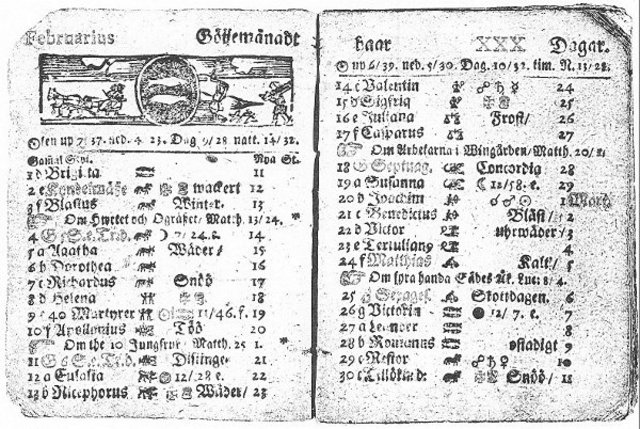 Februarius Göijemånadt
Solen up 7/37. ned. 4 23. Dag 9/28 natt. 14/32.
Gamal Styl. Nya St.
1 d Brigita 11
2 e Kyndelmässe wackert 12
3 f Blasius Winter. 13
Om Hwetet och Ogräset, Matth. 13/24.
4 G 7/24. f. 14
5 a Agatha Wäder/ 15
6 b Dorothea 16
7 c Richardus Snöö 17
8 d Helena 18
9 e 40 Martyrer 11/46. f. 19
10 f Apollonius Töö 20
Om the 10 Jungfrur, Matth. 25 1.
11 G Distinge. 21
12 a Eulalia 12/28 e. 22
13 b Nicephorus Wäder/ 23
haar XXX Dagar.
up 6/39. ned. 5/30. Dag. 10/32. tim. N. 13/28.
14 c Valentin 24
15 d Sigfrid 25
16 e Juliana Frost/ 26
17 f Casparus 27
Om Arbetarna i Wingården/Matth. 20/1.
18 G Septuag. Concordia 28
19 a Susanna 12/58. e. 29
20 d Joachim 1 Mart.
21 c Benedictus Bläst/ 2
22 d Victor uhrwäder/ 3
23 e Tertuliang 4
24 f Matthias Kalt/ 5
Om fyra handa Sädes Åk. Luc: 8/4.
25 G Sexages. Skottdagen. 6
26 g Victorin 12/7. e. 7
27 a Leander 8
28 b Romanus ostadigt 9
29 c Nestor 10
30 c Tillökind. Snöö/ 11